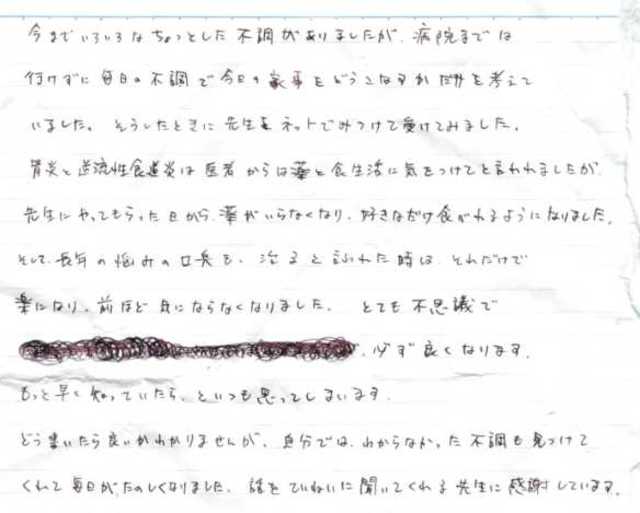 今までいろいろなちょっとした不調がありましたが、病院までは
行けずに毎日の不調で今日の家事をどうこなすかだけを考えて
いました。そうしたときに先生をネットでみつけて受けてみました。
胃炎と逆流性食道炎は医者からは薬と食生活に気をつけてと言われましたが
先生にやってもらった日から、薬がいらなくなり、好きなだけ食べれるようになりました。
そして、長年の悩みの口臭も、治ると言われた時は、それだけで
楽になり、前ほど気にならなくなりました。とても不思議で
、必ず良くなります。
もっと早く知っていたら、といつも思ってしまいます。
どう書いたら良いかわかりませんが、自分では、わからなかった不調も見つけて
くれて毎日がたのしくなりました。話をていねいに聞いてくれる先生に感謝しています。